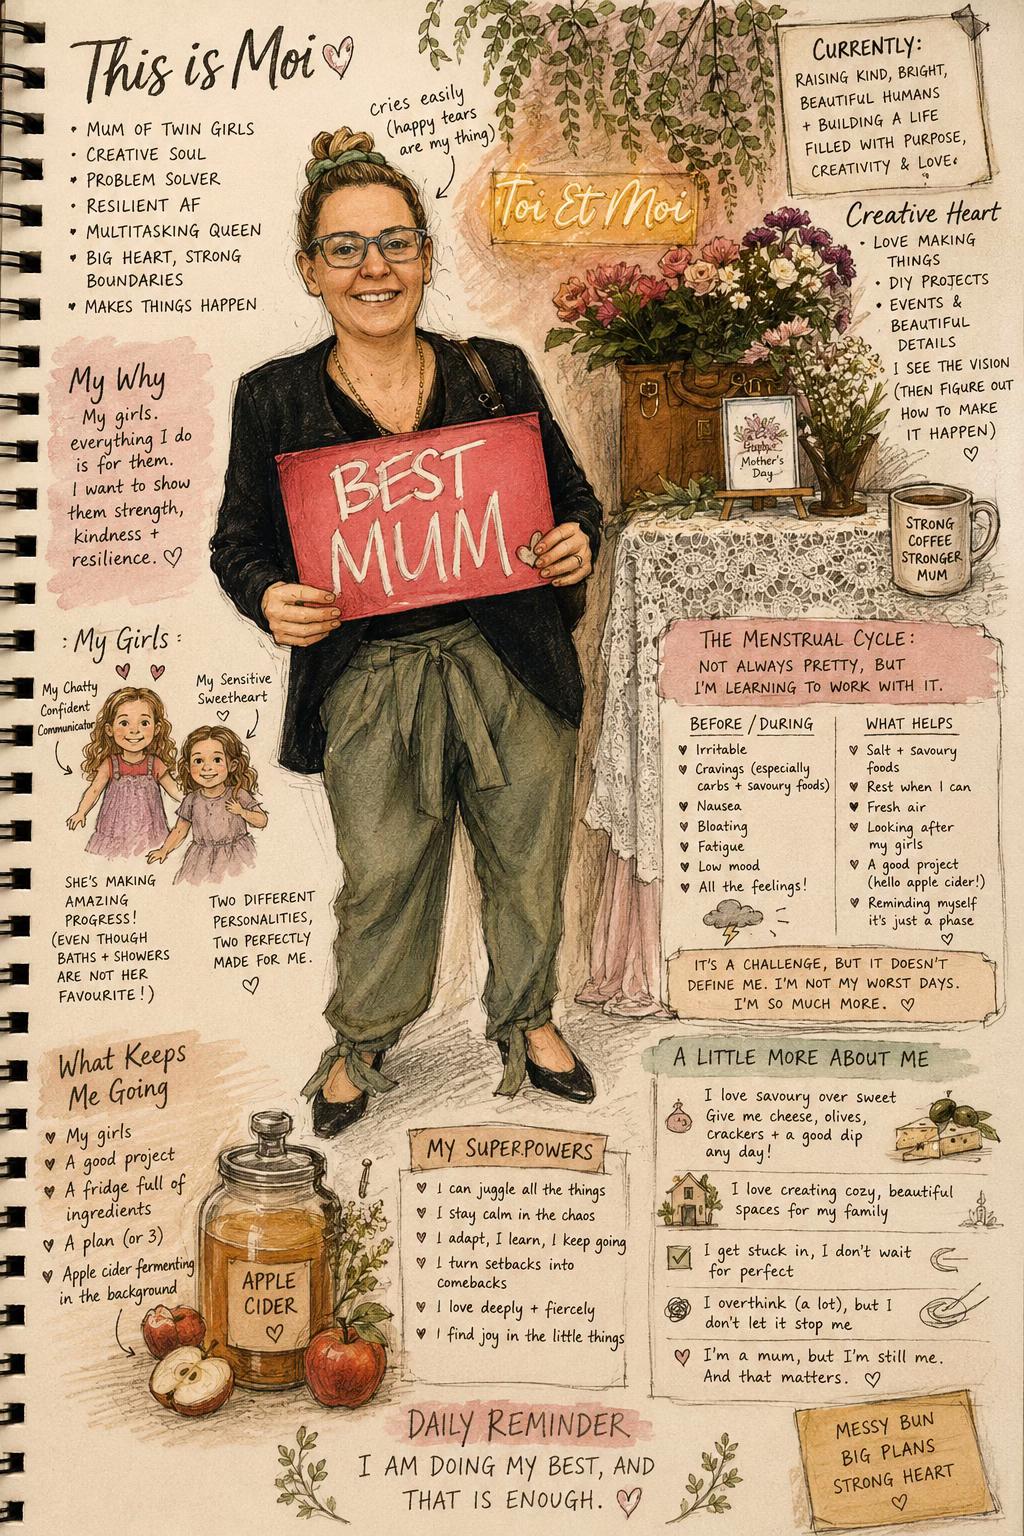 This is Moi
• MUM OF TWIN GIRLS
• CREATIVE SOUL
• PROBLEM SOLVER
• RESILIENT AF
• MULTITASKING QUEEN
• BIG HEART, STRONG
BOUNDARIES
• MAKES THINGS HAPPEN
cries easily
(happy tears
are my thing)
Toi Et Moi
CURRENTLY:
RAISING KIND, BRIGHT,
BEAUTIFUL HUMANS
+ BUILDING A LIFE
FILLED WITH PURPOSE,
CREATIVITY & LOVE.
Creative Heart
• LOVE MAKING
THINGS
• DIY PROJECTS
• EVENTS &
BEAUTIFUL
DETAILS
• I SEE THE VISION
(THEN FIGURE OUT
HOW TO MAKE
IT HAPPEN)
My Why
My girls.
everything I do
is for them.
I want to show
them strength,
kindness +
resilience.
BEST
MUM
Mother's
Day
STRONG
COFFEE
STRONGER
MUM
: My Girls :
My Chatty
Confident
Communicator
My Sensitive
Sweetheart
SHE'S MAKING
AMAZING
PROGRESS!
(EVEN THOUGH
BATHS + SHOWERS
ARE NOT HER
FAVOURITE!)
TWO DIFFERENT
PERSONALITIES,
TWO PERFECTLY
MADE FOR ME.
THE MENSTRUAL CYCLE:
NOT ALWAYS PRETTY, BUT
I'M LEARNING TO WORK WITH IT.
BEFORE / DURING
Irritable
Cravings (especially
carbs + savoury foods)
Nausea
Bloating
Fatigue
Low mood
All the feelings!
WHAT HELPS
Salt + savoury
foods
Rest when I can
Fresh air
Looking after
my girls
A good project
(hello apple cider!)
Reminding myself
it's just a phase
IT'S A CHALLENGE, BUT IT DOESN'T
DEFINE ME. I'M NOT MY WORST DAYS.
I'M SO MUCH MORE.
What Keeps
Me Going
My girls
A good project
A fridge full of
ingredients
A plan (or 3)
Apple cider fermenting
in the background
APPLE
CIDER
MY SUPERPOWERS
I can juggle all the things
I stay calm in the chaos
I adapt, I learn, I keep going
I turn setbacks into
comebacks
I love deeply + fiercely
I find joy in the little things
A LITTLE MORE ABOUT ME
I love savoury over sweet
Give me cheese, olives,
crackers + a good dip
any day!
I love creating cozy, beautiful
spaces for my family
I get stuck in, I don't wait
for perfect
I overthink (a lot), but I
don't let it stop me
I'm a mum, but I'm still me.
And that matters.
DAILY REMINDER
I AM DOING MY BEST, AND
THAT IS ENOUGH.
MESSY BUN
BIG PLANS
STRONG HEART